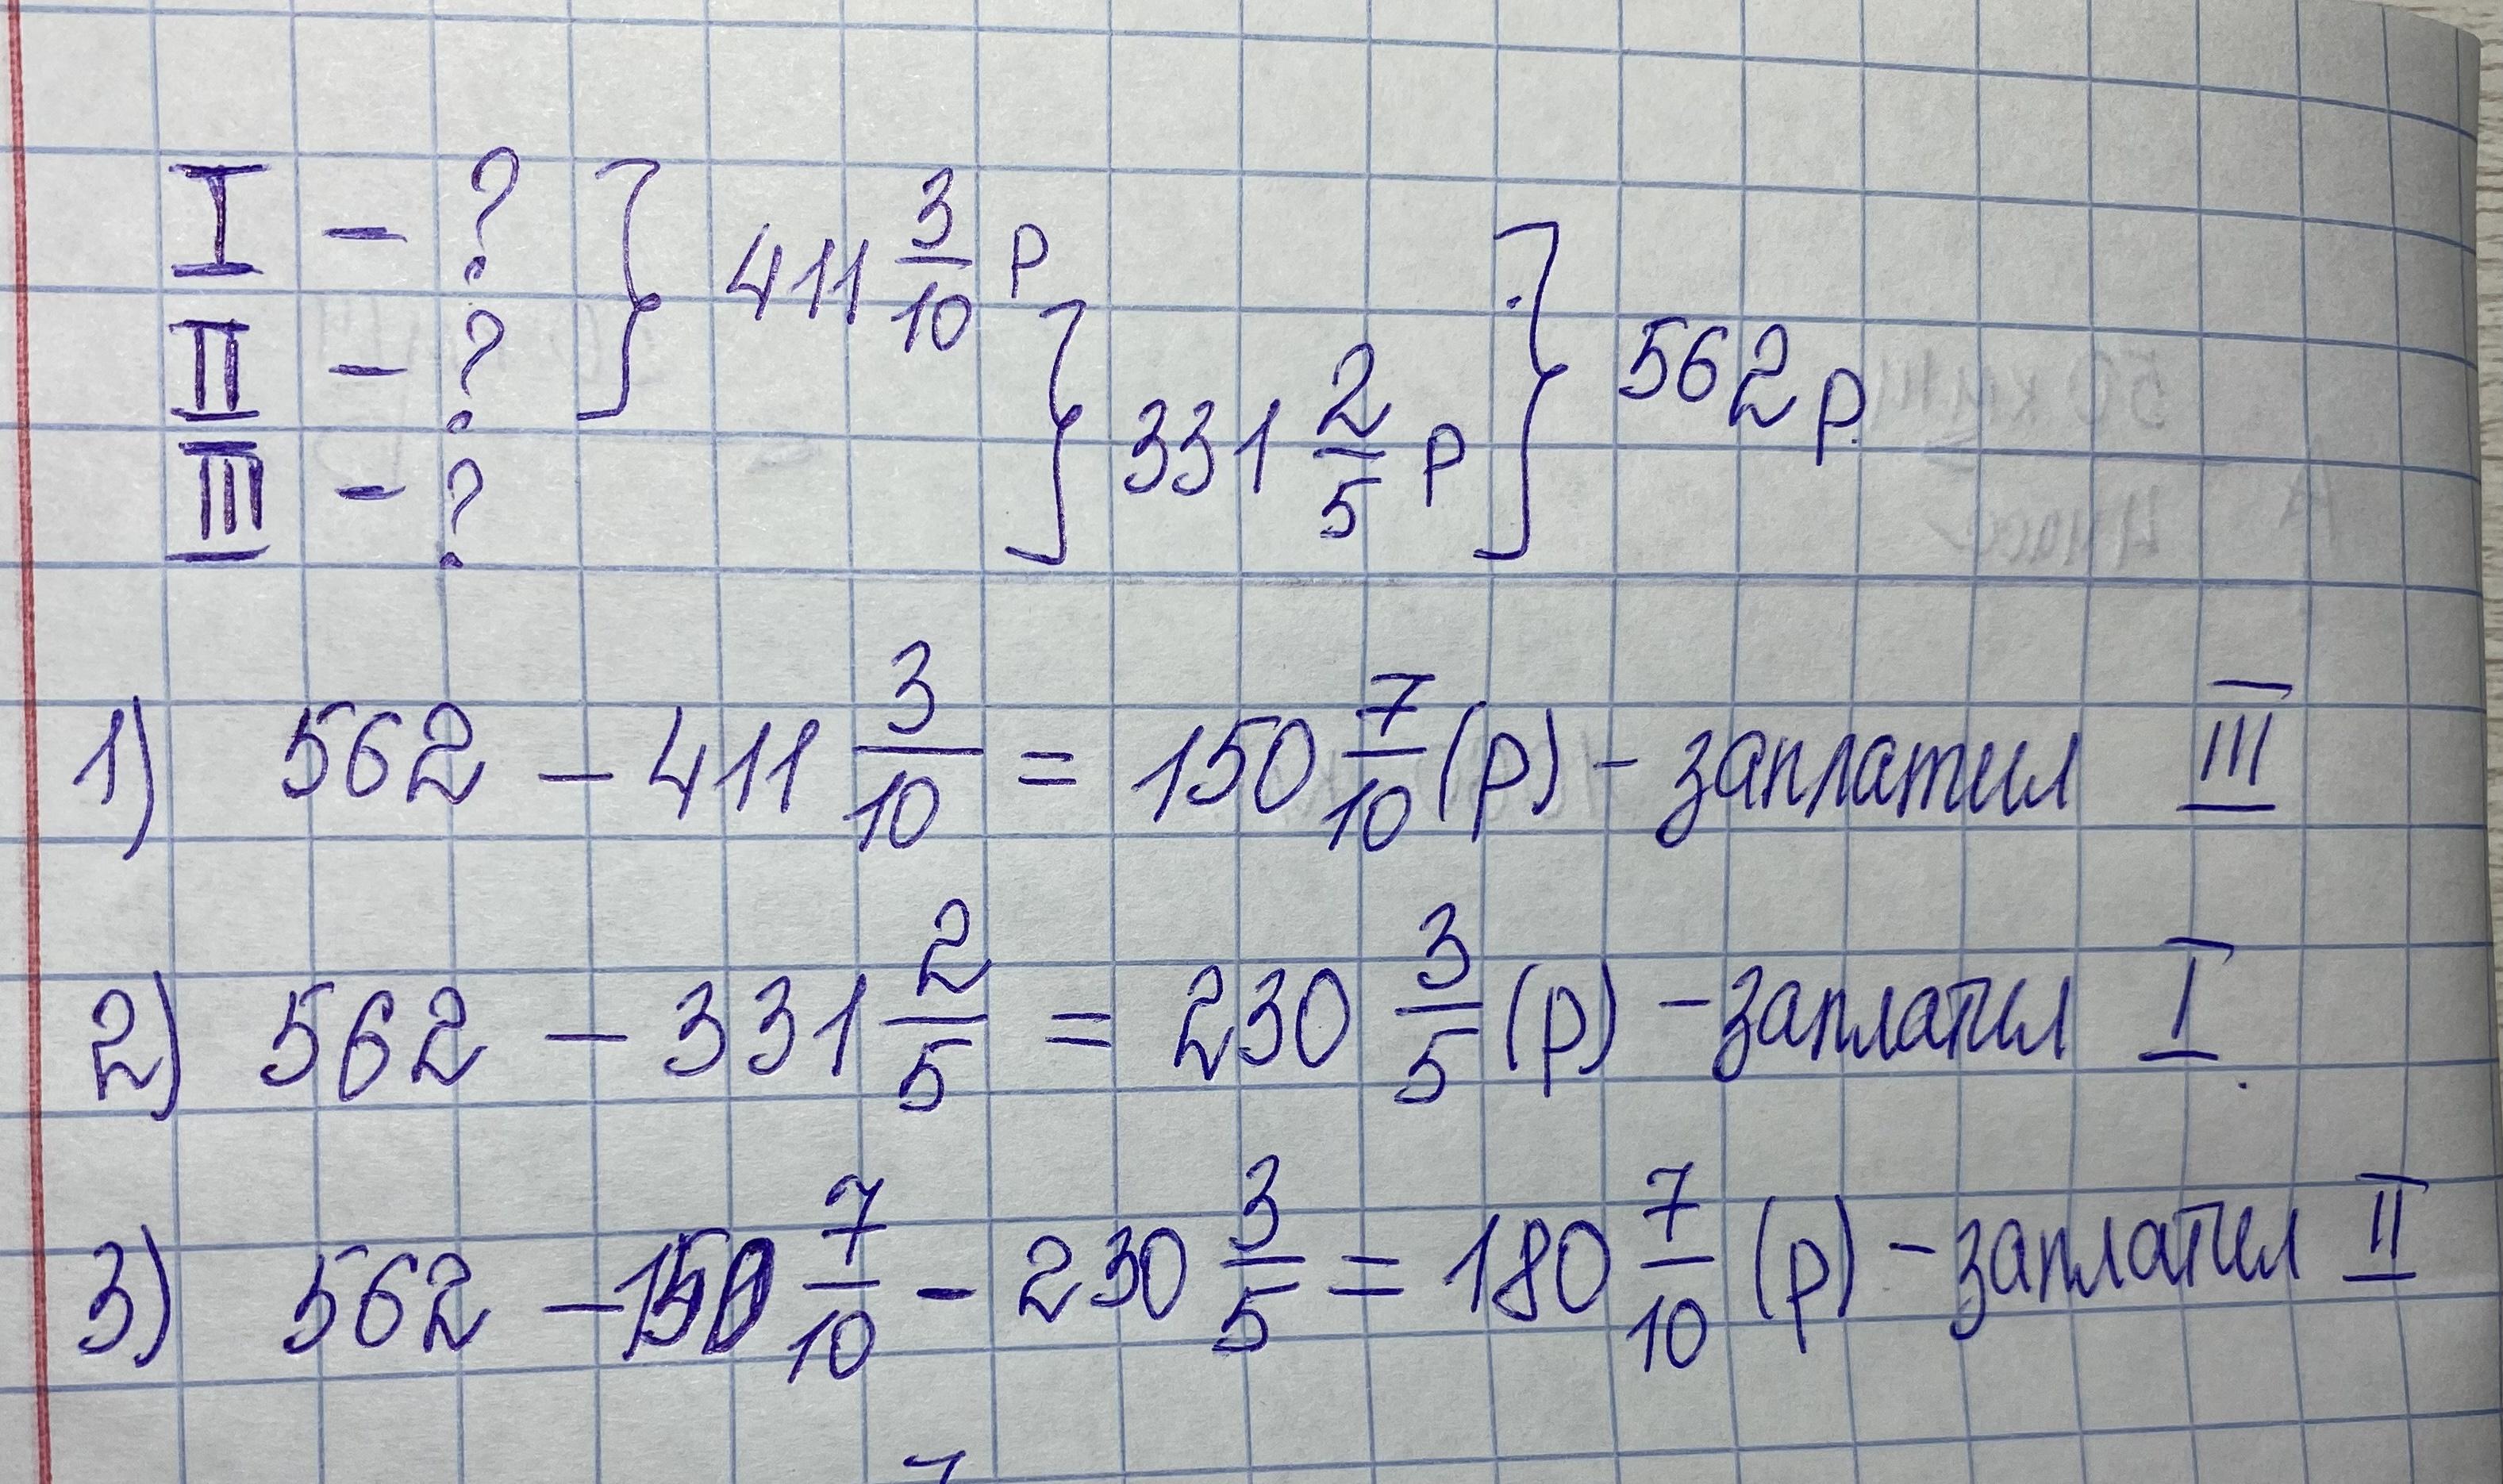 I – ? } 411 3/10 р
II – ? } 331 2/5 р } 562 р.
III – ?
1) 562 – 411 3/10 = 150 7/10 (р) – заплатил III
2) 562 – 331 2/5 = 230 3/5 (р) – заплатил I.
3) 562 – 150 7/10 – 230 3/5 = 180 7/10 (р) – заплатил II